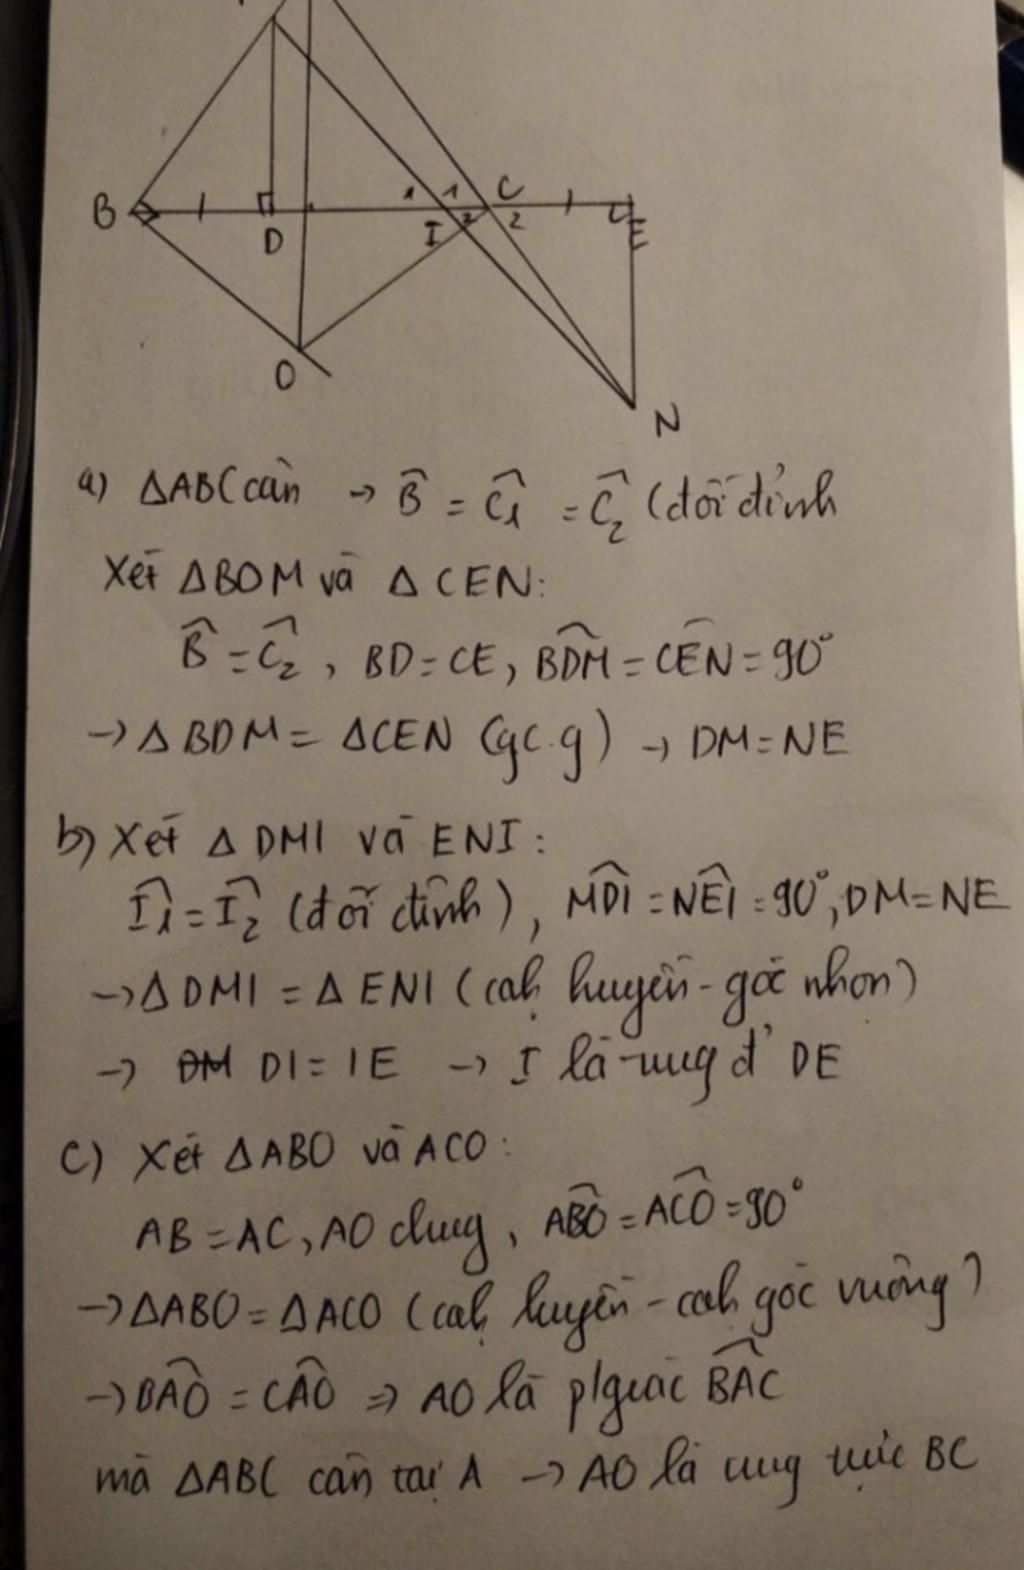 B
D
I
1
1
2
C
2
E
O
N
a) ΔABC cân → B̂ = Ĉ₁ = Ĉ₂ (đối đỉnh
Xét ΔBOM và Δ CEN:
B̂ = Ĉ₂ , BD = CE, BDM̂ = CEN̂ = 90°
→ Δ BDM = ΔCEN (gc.g) → DM = NE
b) Xét Δ DMI và ENI :
Î₁ = Î₂ (đối đỉnh), MDÎ = NEÎ = 90°, DM = NE
→ Δ DMI = Δ ENI (cạh huyền - góc nhọn)
→ DI = IE → I là trug đ' DE
c) Xét ΔABO và ACO :
AB = AC, AO chug, ABÔ = ACÔ = 90°
→ ΔABO = ΔACO (cạh huyền - cạh góc vuông)
→ BAÔ = CAÔ ⇒ AO là p/giác BAĈ
mà ΔABC cân tại A → AO là trug trực BC